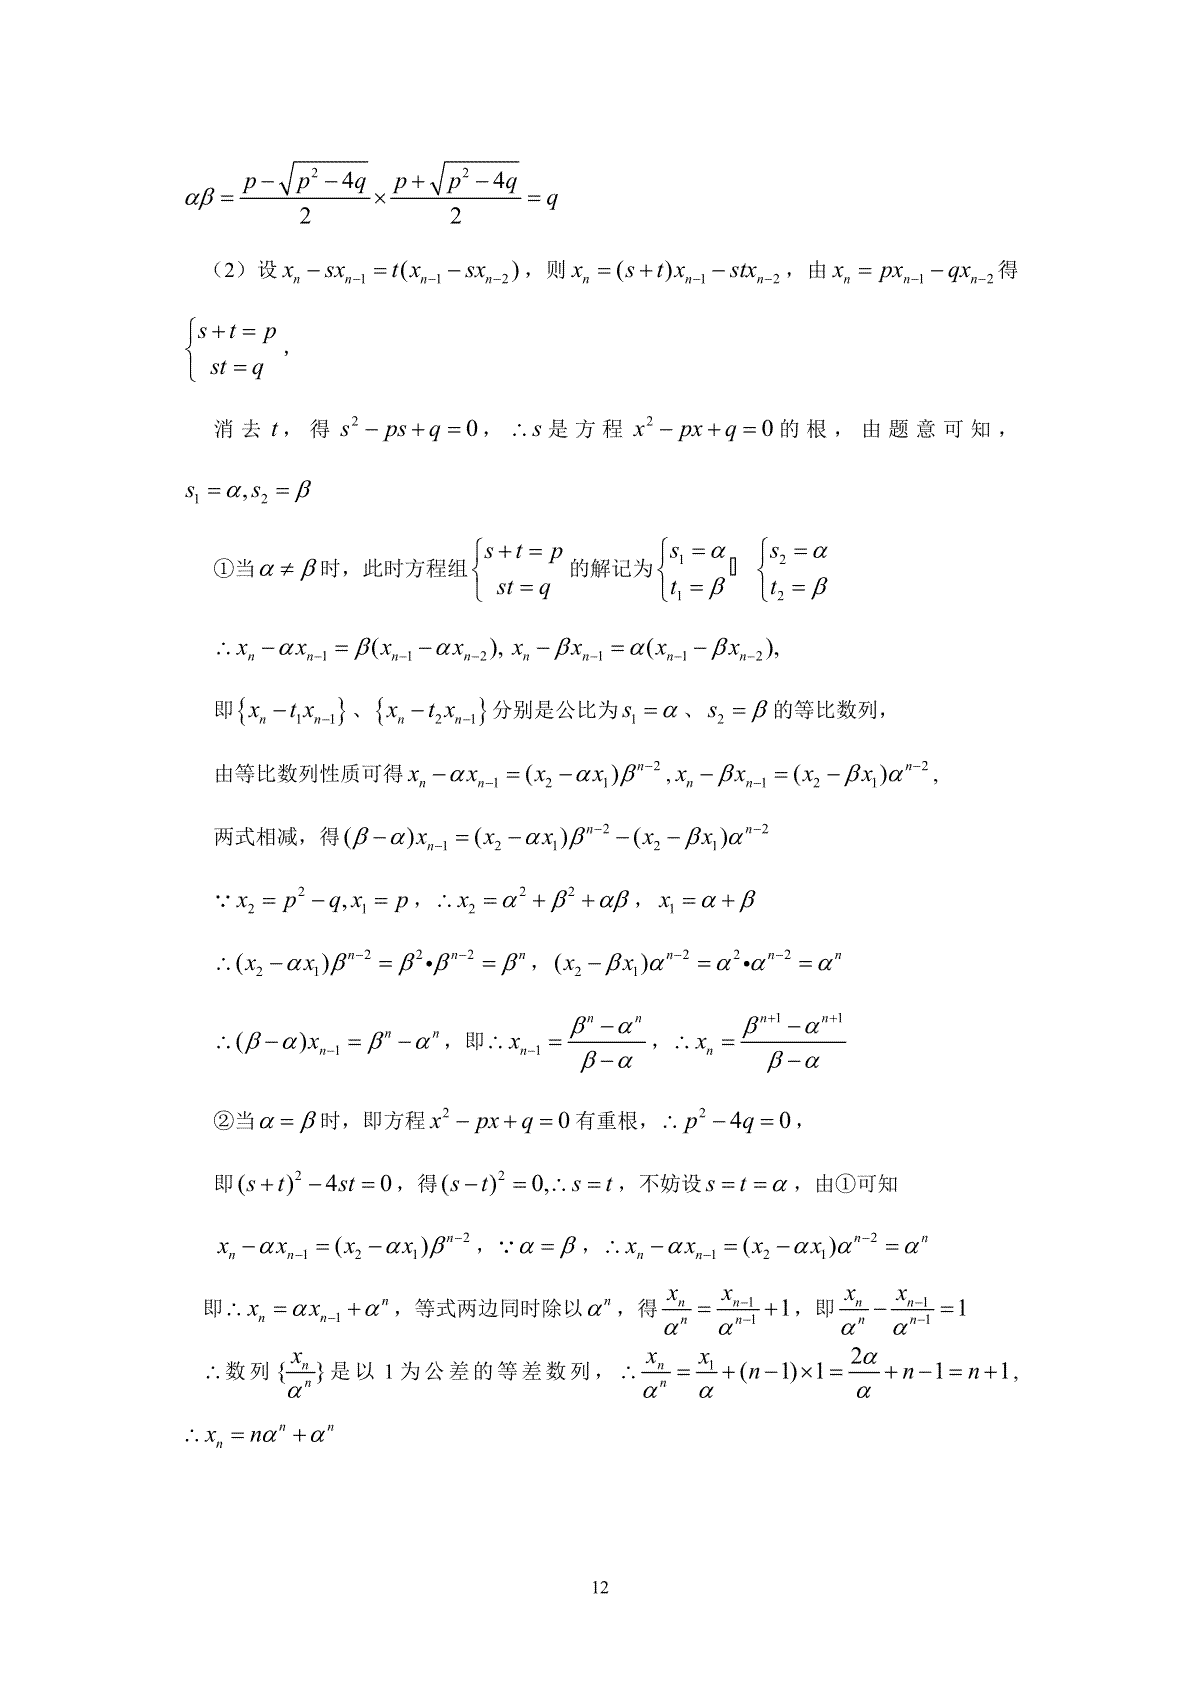 αβ = (p − √(p² − 4q))/2 × (p + √(p² − 4q))/2 = q
（2）设 xₙ − sxₙ₋₁ = t(xₙ₋₁ − sxₙ₋₂)，则 xₙ = (s + t)xₙ₋₁ − stxₙ₋₂，由 xₙ = pxₙ₋₁ − qxₙ₋₂ 得
{s + t = p, st = q，
消去 t，得 s² − ps + q = 0，∴ s 是方程 x² − px + q = 0 的根，由题意可知，
s₁ = α, s₂ = β
①当 α ≠ β 时，此时方程组 {s + t = p, st = q 的解记为 {s₁ = α, t₁ = β {s₂ = α, t₂ = β
∴ xₙ − αxₙ₋₁ = β(xₙ₋₁ − αxₙ₋₂), xₙ − βxₙ₋₁ = α(xₙ₋₁ − βxₙ₋₂),
即 {xₙ − t₁xₙ₋₁}、{xₙ − t₂xₙ₋₁} 分别是公比为 s₁ = α、s₂ = β 的等比数列，
由等比数列性质可得 xₙ − αxₙ₋₁ = (x₂ − αx₁)βⁿ⁻², xₙ − βxₙ₋₁ = (x₂ − βx₁)αⁿ⁻²,
两式相减，得 (β − α)xₙ₋₁ = (x₂ − αx₁)βⁿ⁻² − (x₂ − βx₁)αⁿ⁻²
∵ x₂ = p² − q, x₁ = p，∴ x₂ = α² + β² + αβ，x₁ = α + β
∴ (x₂ − αx₁)βⁿ⁻² = β²•βⁿ⁻² = βⁿ，(x₂ − βx₁)αⁿ⁻² = α²•αⁿ⁻² = αⁿ
∴ (β − α)xₙ₋₁ = βⁿ − αⁿ，即∴ xₙ₋₁ = (βⁿ − αⁿ)/(β − α)，∴ xₙ = (βⁿ⁺¹ − αⁿ⁺¹)/(β − α)
②当 α = β 时，即方程 x² − px + q = 0 有重根，∴ p² − 4q = 0，
即 (s + t)² − 4st = 0，得 (s − t)² = 0,∴ s = t，不妨设 s = t = α，由①可知
xₙ − αxₙ₋₁ = (x₂ − αx₁)βⁿ⁻²，∵ α = β，∴ xₙ − αxₙ₋₁ = (x₂ − αx₁)αⁿ⁻² = αⁿ
即∴ xₙ = αxₙ₋₁ + αⁿ，等式两边同时除以 αⁿ，得 xₙ/αⁿ = xₙ₋₁/αⁿ⁻¹ + 1，即 xₙ/αⁿ − xₙ₋₁/αⁿ⁻¹ = 1
∴数列 {xₙ/αⁿ} 是以 1 为公差的等差数列，∴ xₙ/αⁿ = x₁/α + (n − 1)×1 = 2α/α + n − 1 = n + 1,
∴ xₙ = nαⁿ + αⁿ
12